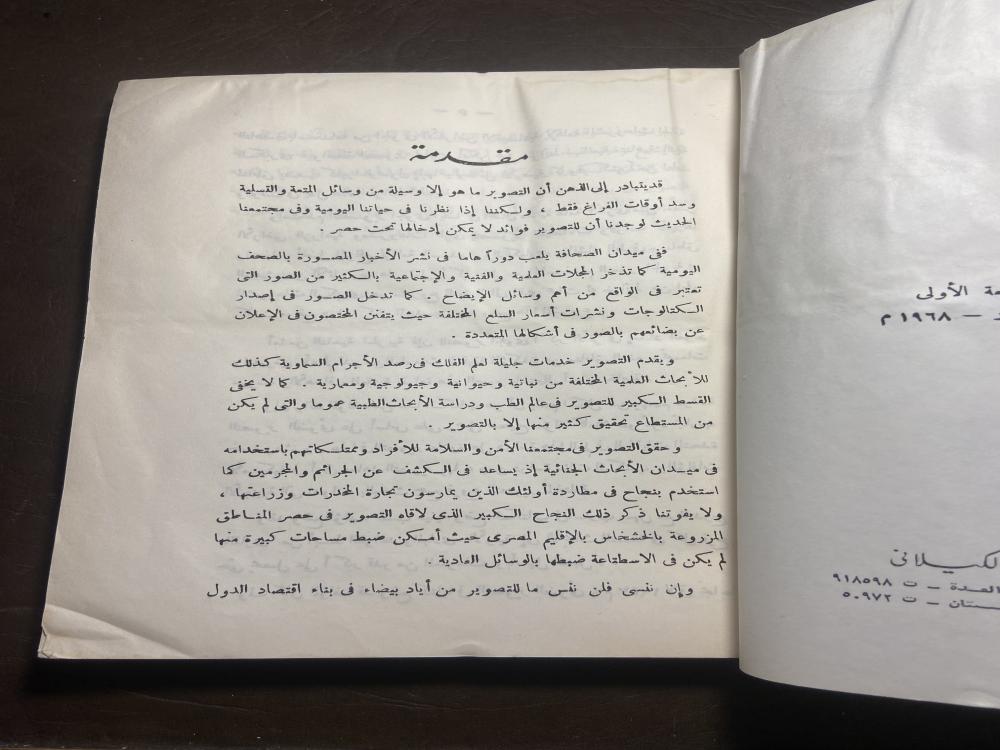 مقدمة
قد يتبادر إلى الذهن أن التصوير ما هو إلا وسيلة من وسائل المتعة والتسلية
وسد أوقات الفراغ فقط ، ولكننا إذا نظرنا فى حياتنا اليومية وفى مجتمعنا
الحديث لوجدنا أن للتصوير فوائد لا يمكن إدخالها تحت حصر .
ففى ميدان الصحافة يلعب دوراً هاما فى نشر الأخبار المصورة بالصحف
اليومية كما تذخر المجلات العلمية والفنية والإجتماعية بالكثير من الصور التى
تعتبر فى الواقع من أهم وسائل الإيضاح . كما تدخل الصور فى إصدار
الكتالوجات ونشرات أسعار السلع المختلفة حيث يتفنن المختصون فى الإعلان
عن بضائعهم بالصور فى أشكالها المتعددة .
ويقدم التصوير خدمات جليلة لعلم الفلك فى رصد الأجرام السماوية كذلك
للأبحاث العلمية المختلفة من نباتية وحيوانية وجيولوجية ومعمارية . كما لا يخفى
القسط الكبير للتصوير فى عالم الطب ودراسة الأبحاث الطبية عموما والتى لم يكن
من المستطاع تحقيق كثير منها إلا بالتصوير .
وحقق التصوير فى مجتمعنا الأمن والسلامة للأفراد وممتلكاتهم باستخدامه
فى ميدان الأبحاث الجنائية إذ يساعد فى الكشف عن الجرائم والمجرمين كما
استخدم بنجاح فى مطاردة أولئك الذين يمارسون تجارة المخدرات وزراعتها ،
ولا يفوتنا ذكر ذلك النجاح الكبير الذى لاقاه التصوير فى حصر المناطق
المزروعة بالخشخاس بالإقليم المصرى حيث أمكن ضبط مساحات كبيرة منها
لم يكن فى الاسطتاعة ضبطها بالوسائل العادية .
وإن ننسى فلن ننس ما للتصوير من أياد بيضاء فى بناء اقتصاد الدول
الأولى
– ١٩٦٨ م
الكيلانى
– ت ٩١٨٥٩٨
– ت ٥٠٩٧٢